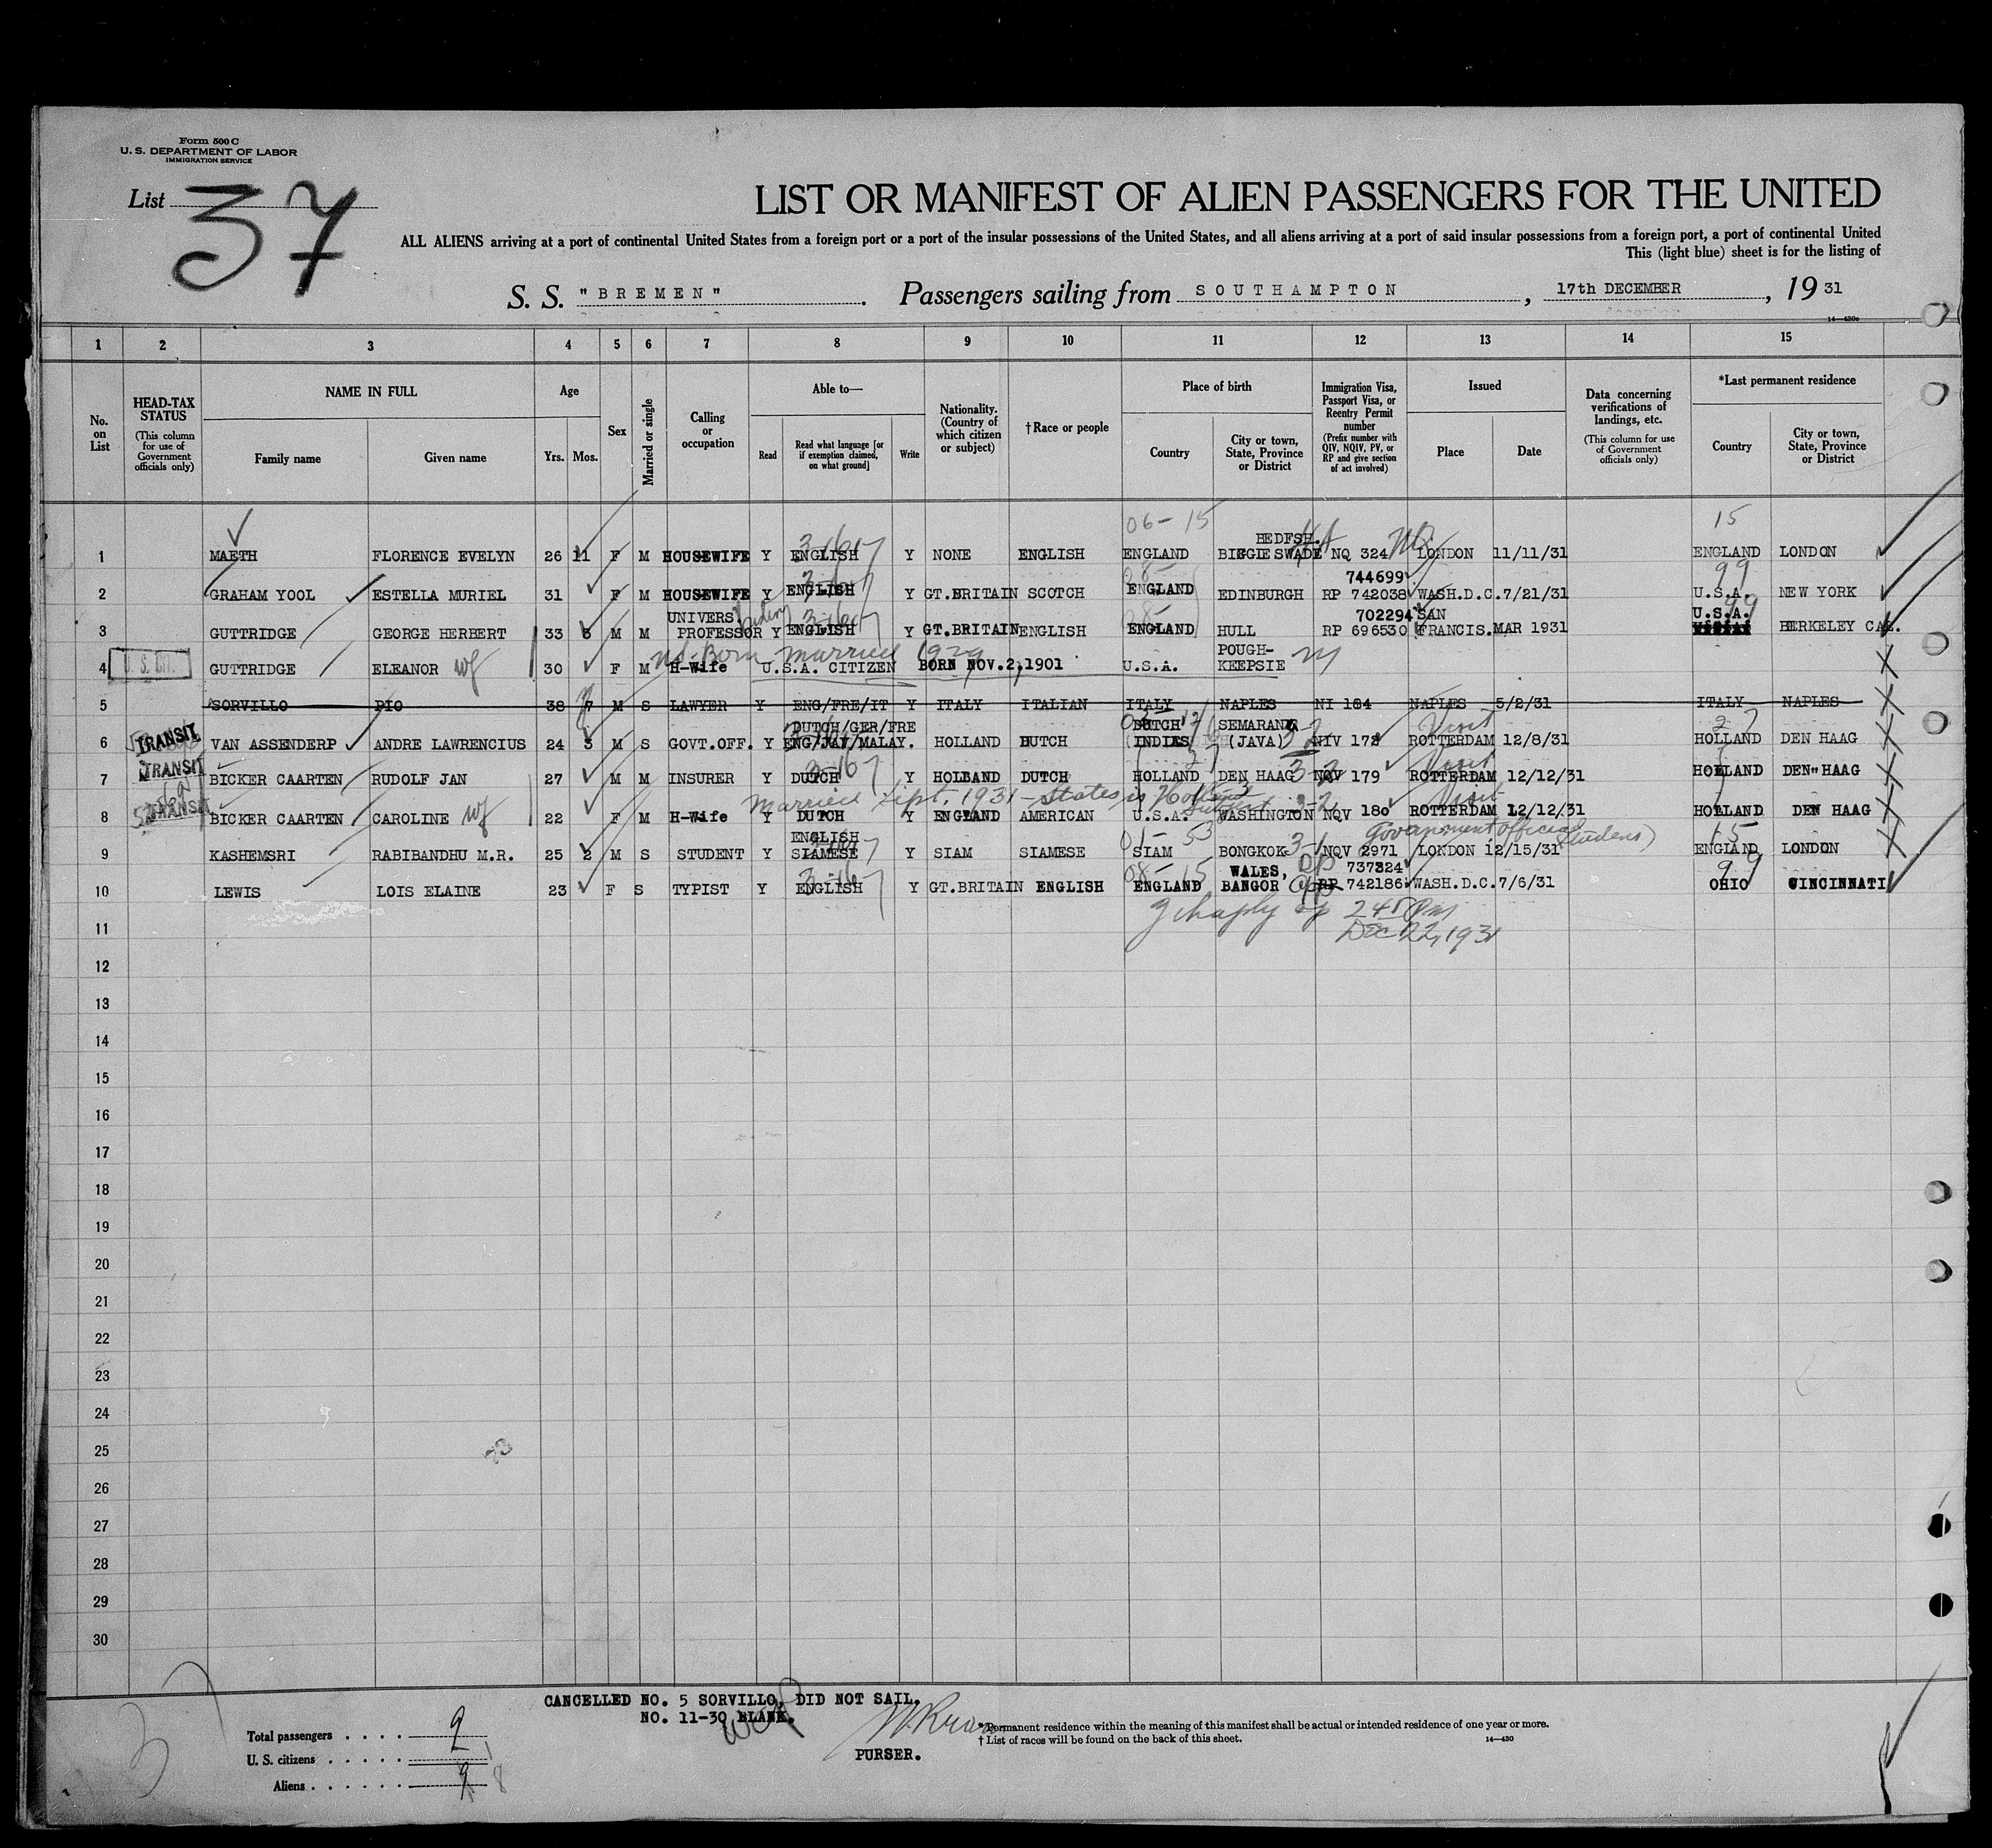 Form 500 C
U. S. DEPARTMENT OF LABOR
IMMIGRATION SERVICE
List 37
LIST OR MANIFEST OF ALIEN PASSENGERS FOR THE UNITED
ALL ALIENS arriving at a port of continental United States from a foreign port or a port of the insular possessions of the United States, and all aliens arriving at a port of said insular possessions from a foreign port, a port of continental United
This (light blue) sheet is for the listing of
S. S. "BREMEN" . Passengers sailing from SOUTHAMPTON , 17th DECEMBER , 19 31
14—430a
1 2 3 4 5 6 7 8 9 10 11 12 13 14 15
No. on List
HEAD-TAX STATUS (This column for use of Government officials only)
NAME IN FULL Family name Given name
Age Yrs. Mos.
Sex
Married or single
Calling or occupation
Able to— Read Read what language [or if exemption claimed, on what ground] Write
Nationality. (Country of which citizen or subject)
†Race or people
Place of birth Country City or town, State, Province or District
Immigration Visa, Passport Visa, or Reentry Permit number (Prefix number with QIV, NQIV, PV, or RP and give section of act involved)
Issued Place Date
Data concerning verifications of landings, etc. (This column for use of Government officials only)
*Last permanent residence Country City or town, State, Province or District
06-15 15
BEDFSH.
1 MAETH FLORENCE EVELYN 26 11 F M HOUSEWIFE Y ENGLISH Y NONE ENGLISH ENGLAND BIGGIESWADE NQ 324 NQ LONDON 11/11/31 ENGLAND LONDON
744699 99
2 GRAHAM YOOL ESTELLA MURIEL 31 F M HOUSEWIFE Y ENGLISH Y GT.BRITAIN SCOTCH ENGLAND EDINBURGH RP 742038 WASH.D.C. 7/21/31 U.S.A. NEW YORK
UNIVERS 702294 SAN U.S.A.
3 GUTTRIDGE GEORGE HERBERT 33 3 M M PROFESSOR Y ENGLISH Y GT.BRITAIN ENGLISH ENGLAND HULL RP 696530 FRANCIS. MAR 1931 BERKELEY CAL.
Born married 1929 POUGH-
4 U. S. CIT. GUTTRIDGE ELEANOR wf 30 F M H-Wife U.S.A. CITIZEN BORN NOV.2,1901 U.S.A. KEEPSIE
5 SORVILLO PIO 38 7 M S LAWYER Y ENG/FRE/IT Y ITALY ITALIAN ITALY NAPLES NI 184 NAPLES 5/2/31 ITALY NAPLES
TRANSIT DUTCH/GER/FRE DUTCH SEMARANG Visit
6 VAN ASSENDERP ANDRE LAWRENCIUS 24 3 M S GOVT.OFF. Y ENG/JAV/MALAY. HOLLAND DUTCH INDIES (JAVA) 3-2 NIV 178 ROTTERDAM 12/8/31 HOLLAND DEN HAAG
TRANSIT Visit
7 BICKER CAARTEN RUDOLF JAN 27 M M INSURER Y DUTCH Y HOLLAND DUTCH HOLLAND DEN HAAG 3-2 NQV 179 ROTTERDAM 12/12/31 HOLLAND DEN HAAG
TRANSIT married Sept. 1931 - States is Holland subject 3-2 Visit
8 BICKER CAARTEN CAROLINE wf 22 F M H-Wife Y DUTCH Y AMERICAN U.S.A. WASHINGTON NQV 180 ROTTERDAM 12/12/31 HOLLAND DEN HAAG
ENGLISH 01-53 Government official Student) 15
9 KASHEMSRI RABIBANDHU M.R. 25 2 M S STUDENT Y SIAMESE Y SIAM SIAMESE SIAM BONGKOK 3-1 NQV 2971 LONDON 12/15/31 ENGLAND LONDON
3-167 08-15 WALES, 737324 99
10 LEWIS LOIS ELAINE 23 F S TYPIST Y ENGLISH Y GT.BRITAIN ENGLISH ENGLAND BANGOR RP 742186 WASH.D.C. 7/6/31 OHIO CINCINNATI
245 Pm
Dec 22, 1931
11
12
13
14
15
16
17
18
19
20
21
22
23
24
25
26
27
28
29
30
37
CANCELLED NO. 5 SORVILLO, DID NOT SAIL.
NO. 11-30 BLANK.
Total passengers . . . . 9
U. S. citizens . . . . . 1
Aliens . . . . . . 8
PURSER.
*Permanent residence within the meaning of this manifest shall be actual or intended residence of one year or more.
† List of races will be found on the back of this sheet. 14—430